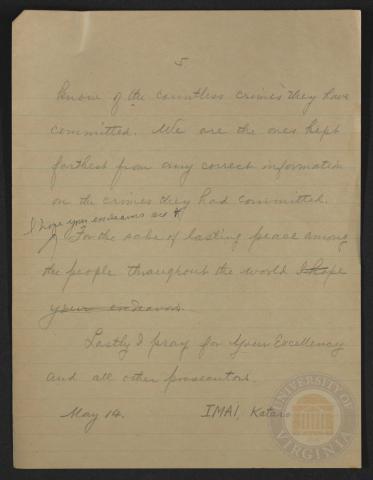 5
know of the countless crimes they have
committed. We are the ones kept
farthest from any correct information
on the crimes they had committed.
I hope your endeavors are
For the sake of lasting peace among
the people throughout the world I hope
your endeavors.
Lastly I pray for Your Excellency
and all other prosecutors.
May 14. IMAI, Kataro
UNIVERSITY OF VIRGINIA